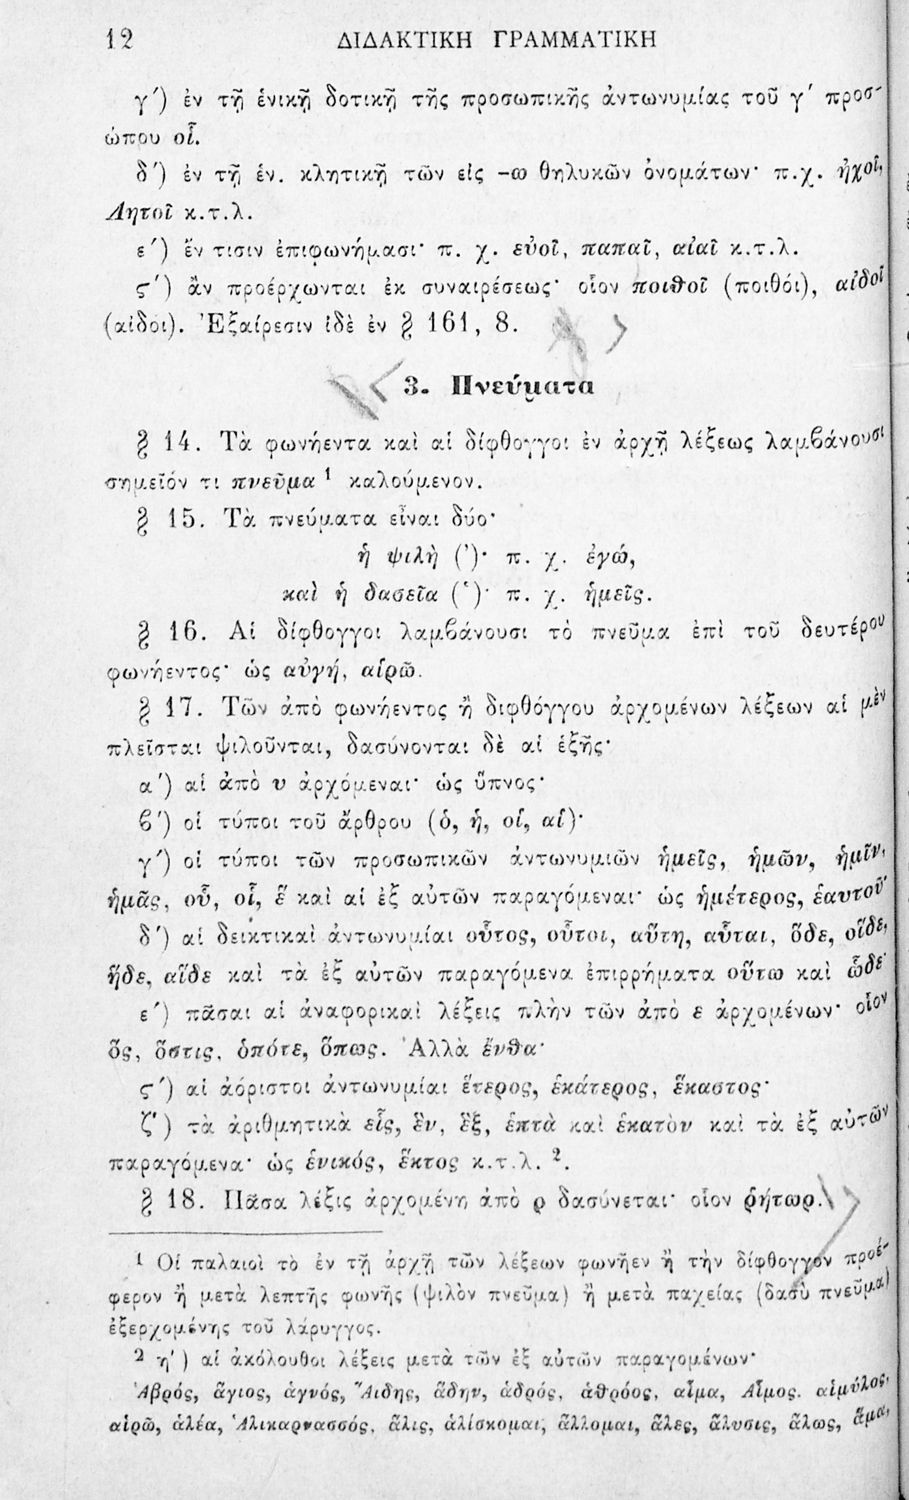 12 ΔΙΔΑΚΤΙΚΗ ΓΡΑΜΜΑΤΙΚΗ
γ´) ἐν τῇ ἑνικῇ δοτικῇ τῆς προσωπικῆς ἀντωνυμίας τοῦ γ´ προσ-
ώπου οἷ.
δ´) ἐν τῇ ἑν. κλητικῇ τῶν εἰς -ω θηλυκῶν ὀνομάτων· π.χ. ἠχοῖ,
Λητοῖ κ.τ.λ.
ε´) ἔν τισιν ἐπιφωνήμασι· π. χ. εὐοῖ, παπαῖ, αἰαῖ κ.τ.λ.
ς´) ἂν προέρχωνται ἐκ συναιρέσεως· οἷον ποιθοῖ (ποιθόι), αἰδοῖ
(αἰδοι). Ἐξαίρεσιν ἰδὲ ἐν § 161, 8.
3. Πνεύματα
§ 14. Τὰ φωνήεντα καὶ αἱ δίφθογγοι ἐν ἀρχῇ λέξεως λαμβάνουσι
σημεῖόν τι πνεῦμα ¹ καλούμενον.
§ 15. Τὰ πνεύματα εἶναι δύο·
ἡ ψιλὴ (᾿)· π. χ. ἐγώ,
καὶ ἡ δασεῖα (῾)· π. χ. ἡμεῖς.
§ 16. Αἱ δίφθογγοι λαμβάνουσι τὸ πνεῦμα ἐπὶ τοῦ δευτέρου
φωνήεντος· ὡς αὐγή, αἱρῶ.
§ 17. Τῶν ἀπὸ φωνήεντος ἢ διφθόγγου ἀρχομένων λέξεων αἱ μὲν
πλεῖσται ψιλοῦνται, δασύνονται δὲ αἱ ἑξῆς·
α´) αἱ ἀπὸ υ ἀρχόμεναι· ὡς ὕπνος·
β´) οἱ τύποι τοῦ ἄρθρου (ὁ, ἡ, οἱ, αἱ)·
γ´) οἱ τύποι τῶν προσωπικῶν ἀντωνυμιῶν ἡμεῖς, ἡμῶν, ἡμῖν,
ἡμᾶς, οὗ, οἷ, ἕ καὶ αἱ ἐξ αὐτῶν παραγόμεναι· ὡς ἡμέτερος, ἑαυτοῦ·
δ´) αἱ δεικτικαὶ ἀντωνυμίαι οὗτος, οὗτοι, αὕτη, αὗται, ὅδε, οἵδε,
ἥδε, αἵδε καὶ τὰ ἐξ αὐτῶν παραγόμενα ἐπιρρήματα οὕτω καὶ ὧδε·
ε´) πᾶσαι αἱ ἀναφορικαὶ λέξεις πλὴν τῶν ἀπὸ ε ἀρχομένων· οἷον
ὅς, ὅστις, ὁπότε, ὅπως. Ἀλλὰ ἔνθα·
ς´) αἱ ἀόριστοι ἀντωνυμίαι ἕτερος, ἑκάτερος, ἕκαστος·
ζ´) τὰ ἀριθμητικὰ εἷς, ἓν, ἓξ, ἑπτὰ καὶ ἑκατὸν καὶ τὰ ἐξ αὐτῶν
παραγόμενα· ὡς ἑνικός, ἕκτος κ.τ.λ. ².
§ 18. Πᾶσα λέξις ἀρχομένη ἀπὸ ρ δασύνεται· οἷον ῥήτωρ.
¹ Οἱ παλαιοὶ τὸ ἐν τῇ ἀρχῇ τῶν λέξεων φωνῆεν ἢ τὴν δίφθογγον προέ-
φερον ἢ μετὰ λεπτῆς φωνῆς (ψιλὸν πνεῦμα) ἢ μετὰ παχείας (δασὺ πνεῦμα)
ἐξερχομένης τοῦ λάρυγγος.
² η´) αἱ ἀκόλουθοι λέξεις μετὰ τῶν ἐξ αὐτῶν παραγομένων·
Ἁβρός, ἅγιος, ἁγνός, Ἅιδης, ἅδην, ἁδρός, ἁθρόος, αἷμα, Αἷμος, αἱμύλος,
αἱρῶ, ἁλέα, Ἁλικαρνασσός, ἅλις, ἁλίσκομαι, ἅλλομαι, ἅλες, ἅλυσις, ἅλως, ἅμα,